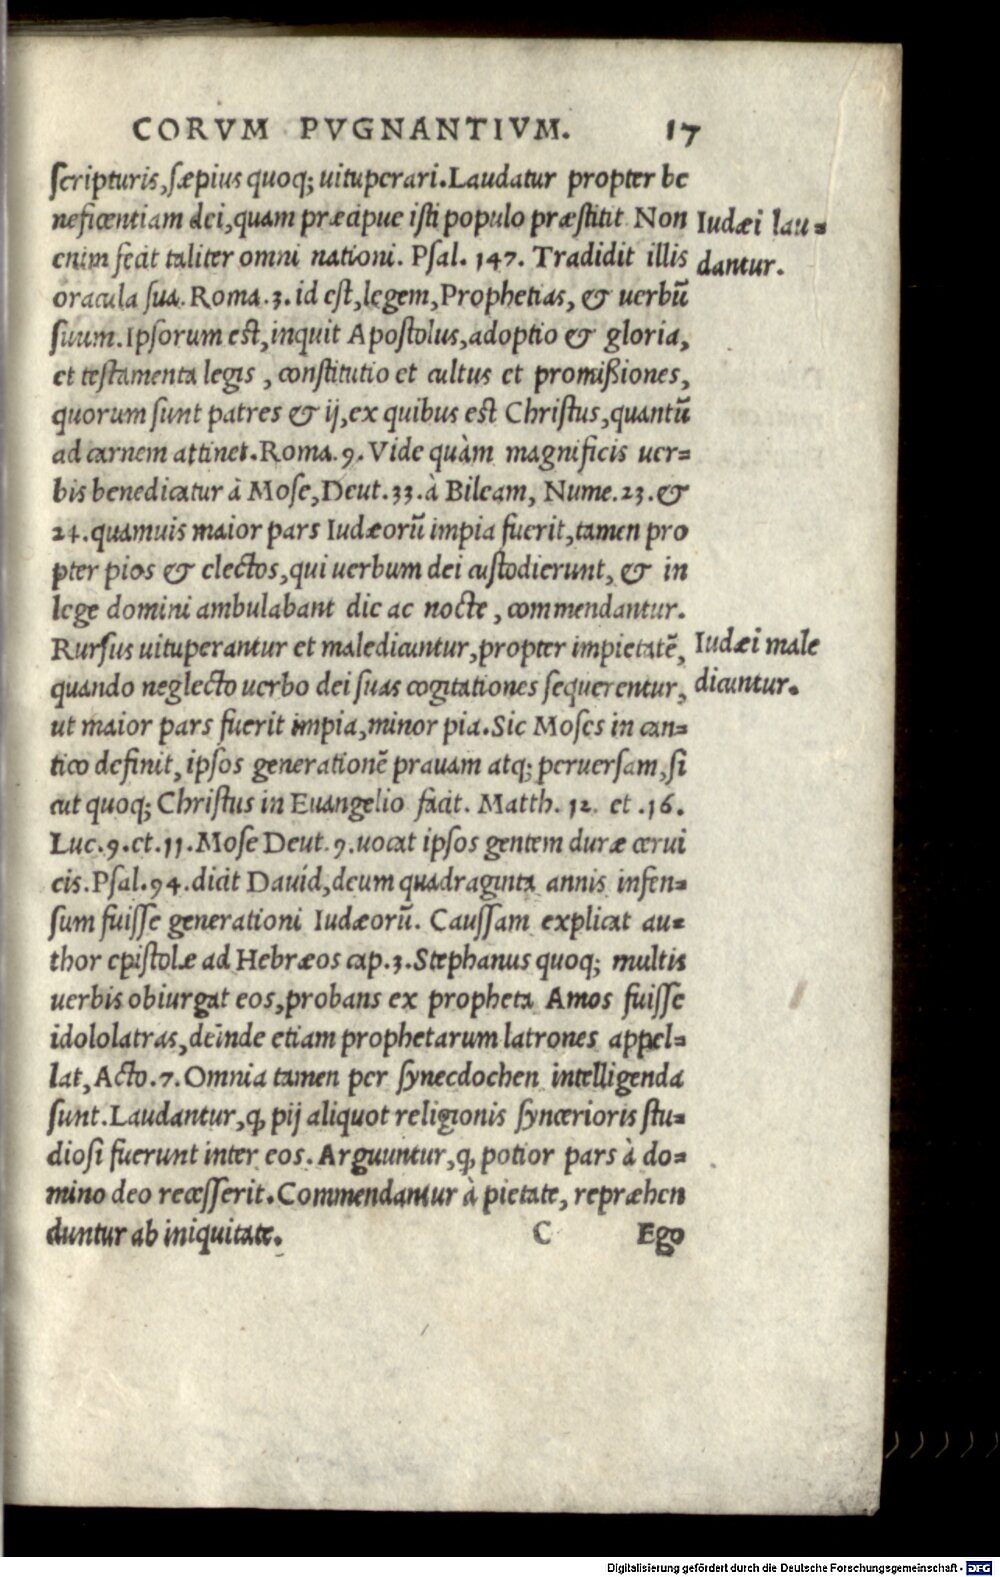 CORVM PVGNANTIVM. 17
scripturis, sæpius quoq; uituperari. Laudatur propter be
neficentiam dei, quam præcipue isti populo præstitit Non
enim fecit taliter omni nationi. Psal. 147. Tradidit illis
oracula sua. Roma. 3. id est, legem, Prophetias, & uerbũ
suum. Ipsorum est, inquit Apostolus, adoptio & gloria,
et testamenta legis, constitutio et cultus et promißiones,
quorum sunt patres & ij, ex quibus est Christus, quantũ
ad carnem attinet. Roma. 9. Vide quàm magnificis uer=
bis benedicatur à Mose, Deut. 33. à Bileam, Nume. 23. &
24. quamuis maior pars Iudæorũ impia fuerit, tamen pro
pter pios & electos, qui uerbum dei custodierunt, & in
lege domini ambulabant die ac nocte, commendantur.
Rursus uituperantur et maledicuntur, propter impietatẽ,
quando neglecto uerbo dei suas cogitationes sequerentur,
ut maior pars fuerit impia, minor pia. Sic Moses in can=
tico definit, ipsos generationẽ prauam atq; peruersam, si
cut quoq; Christus in Euangelio facit. Matth. 12. et .16.
Luc. 9. et. 11. Mose Deut. 9. uocat ipsos gentem duræ cerui
cis. Psal. 94. dicit Dauid, deum quadraginta annis infen=
sum fuisse generationi Iudæorũ. Caussam explicat au=
thor epistolæ ad Hebræos cap. 3. Stephanus quoq; multis
uerbis obiurgat eos, probans ex propheta Amos fuisse
idololatras, deinde etiam prophetarum latrones appel=
lat, Acto. 7. Omnia tamen per synecdochen intelligenda
sunt. Laudantur, ꝙ pij aliquot religionis syncerioris stu=
diosi fuerunt inter eos. Arguuntur, ꝙ potior pars à do=
mino deo recesserit. Commendantur à pietate, repræhen
duntur ab iniquitate.
C Ego
Iudæi lau=
dantur.
Iudæi male
dicuntur.
Digitalisierung gefördert durch die Deutsche Forschungsgemeinschaft - DFG